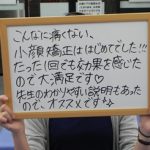 こんなに痛くない、
小顔矯正ははじめてでした!!!
たった1回でも効果を感じた
ので大満足です♡
先生のわかりやすい説明もあった
ので、オススメです♪